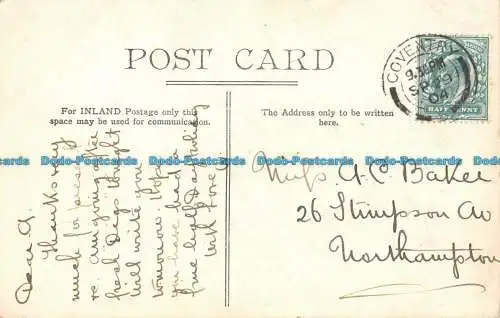 POST CARD
For INLAND Postage only this
space may be used for communication.
The Address only to be written
here.
COVENTRY
9.30 PM
SP 9
04
HALFPENNY
Miss A. C. Baker
26 Stimpson Av
Northampton
Dear A.
Thanks very
much for
re. Am going after
fresh "Digs" tonight
Will write you
tomorrow. Hope
you have had a
fine
with love
Dodo-Postcards Dodo-Postcards Dodo-Postcards Dodo-Postcards Dodo-Postcards